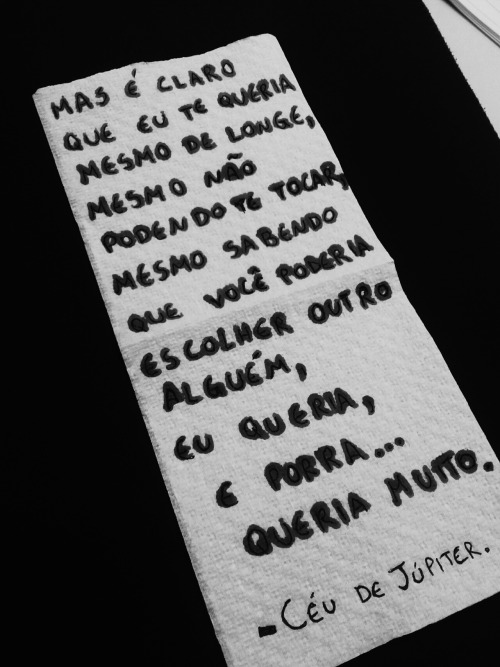 MAS É CLARO
QUE EU TE QUERIA
MESMO DE LONGE,
MESMO NÃO
PODENDO TE TOCAR,
MESMO SABENDO
QUE VOCÊ PODERIA
ESCOLHER OUTRO
ALGUÉM,
EU QUERIA,
E PORRA...
QUERIA MUITO.
-CÉU DE JÚPITER.